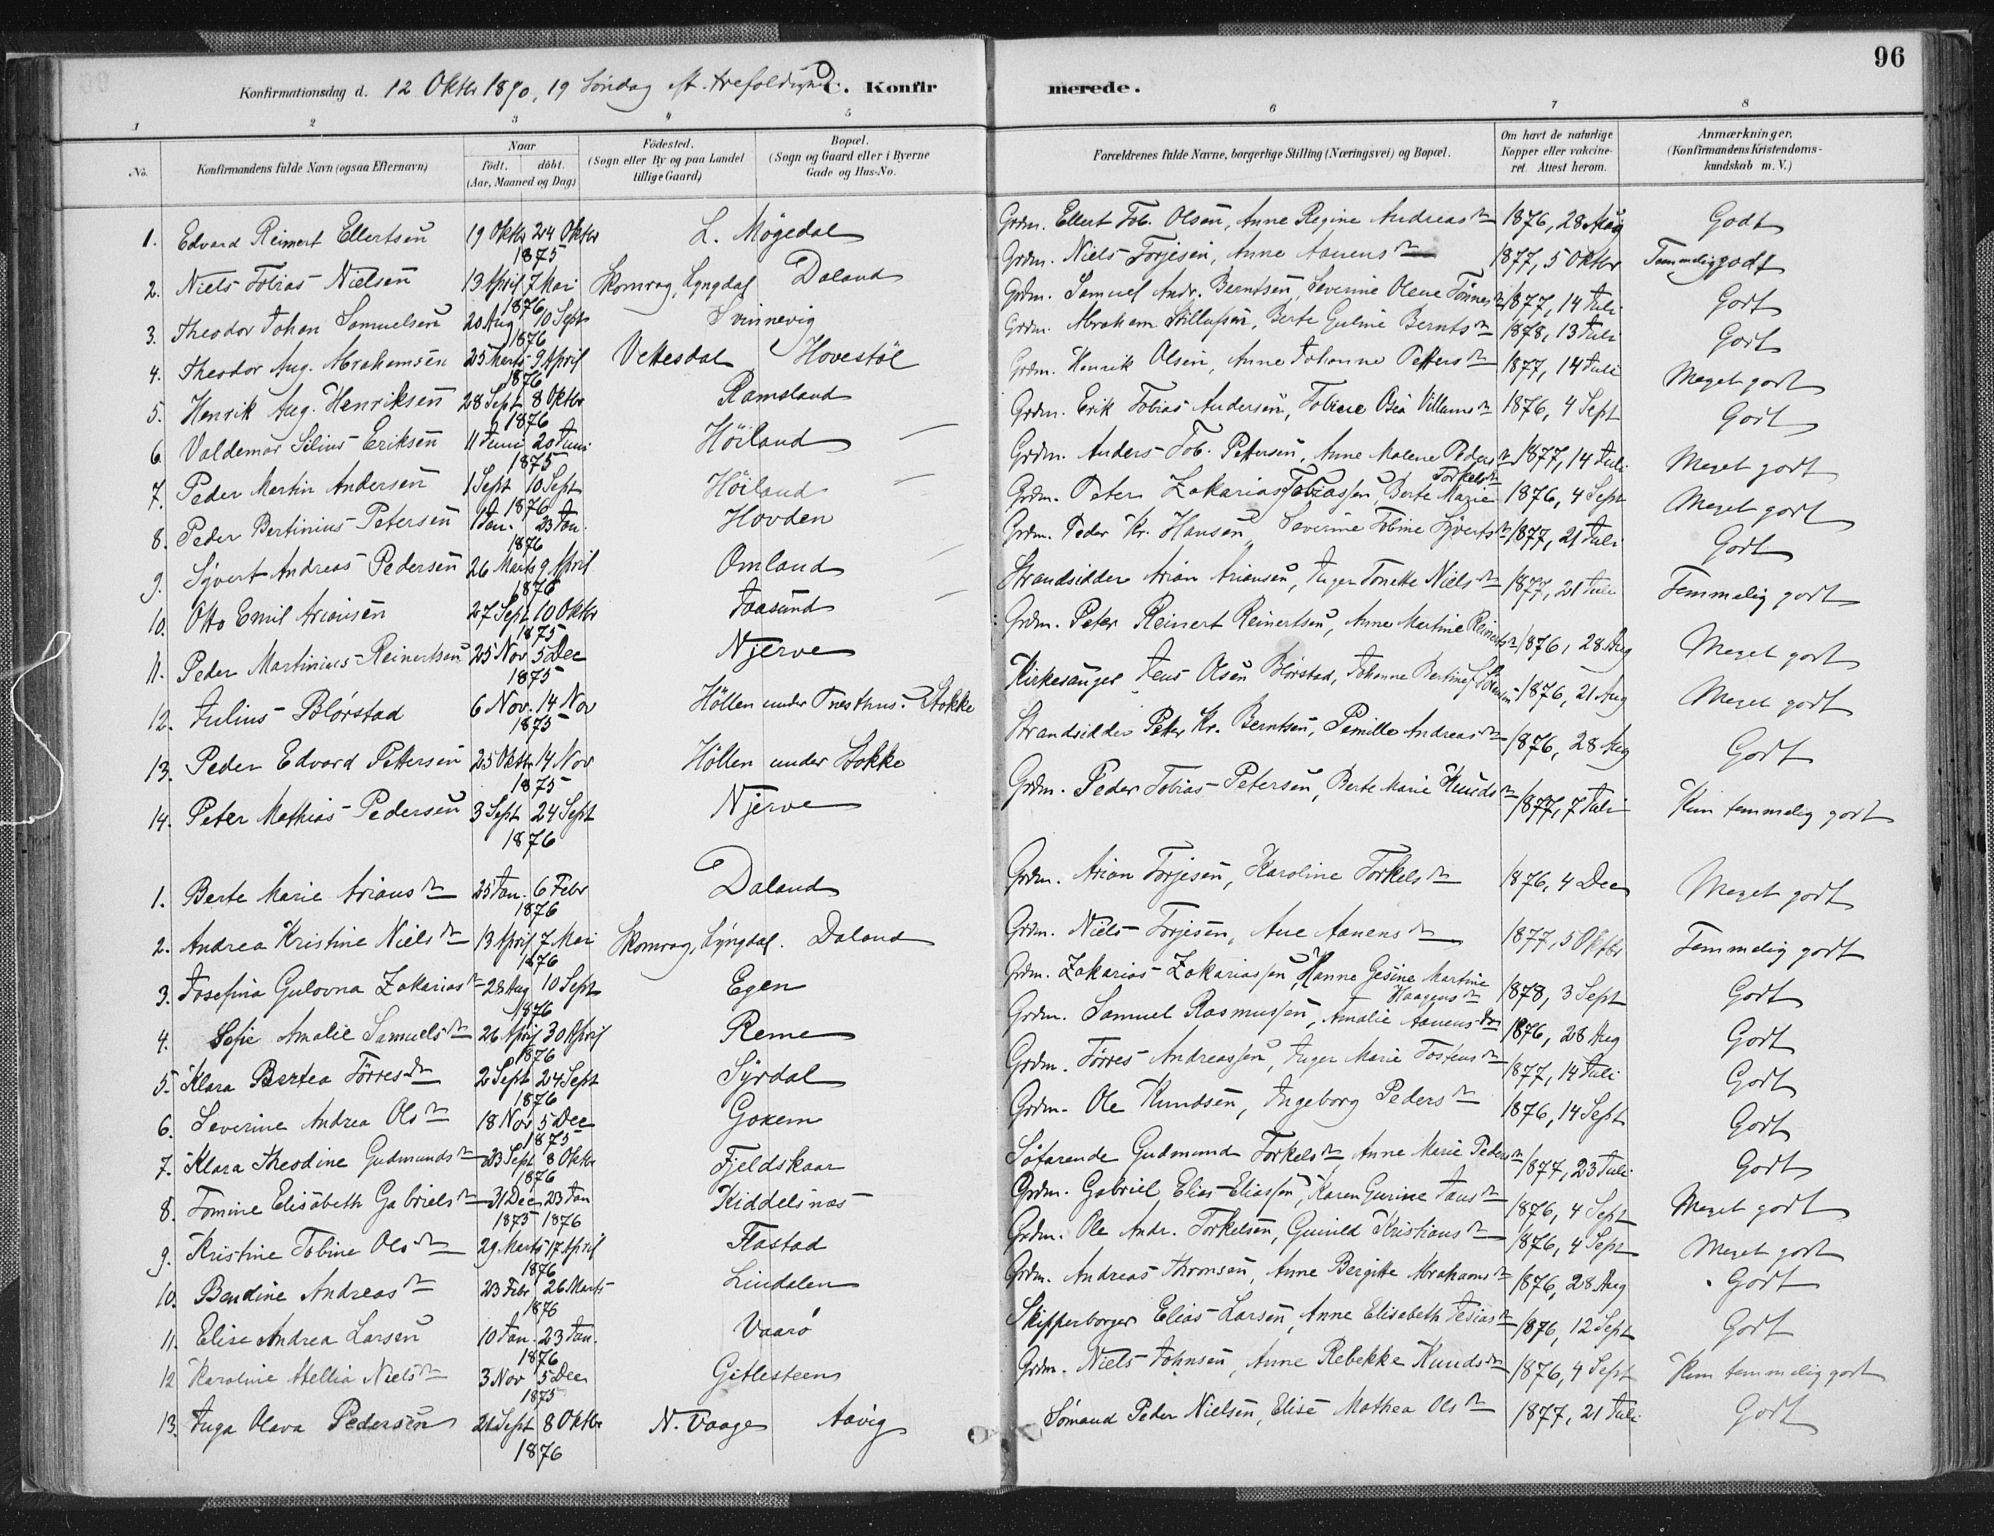 96
Konfirmationsdag d. 12 Oktbr 1890, 19 Söndag eft. trefoldighed. C. Konfirmerede.
1 2 3 4 5 6 7 8
No. Konfirmandens fulde Navn (ogsaa Efternavn) Naar födt. döbt. (Aar, Maaned og Dag) Födested. (Sogn eller By og paa Landet tillige Gaard) Bopæl. (Sogn og Gaard eller i Byerne Gade og Hus-No. Forældrenes fulde Navne, borgerlige Stilling (Næringsvei) og Bopæl. Om havt de naturlige Kopper eller vakcineret. Attest herom. Anmærkninger. (Konfirmandens Kristendomskundskab m. V.)
1. Edvard Reimert Ellertsen 19 Oktbr 24 Oktbr 1875 L. Mögedal Grdm. Ellert Tob. Olsen, Anne Regine Andreasdtr 1876, 28 Aug Godt
2. Niels Tobias Nielsen 13 April 7 Mai 1876 Skomrag, Lyngdal Daland Grdm. Niels Torjesen, Anne Aanensdtr 1877, 5 Oktbr Temmelig godt
3. Theodor Johan Samuelsen 20 Aug 10 Sept 1876 Svinnevig Grdm. Samuel Andr. Berntsen, Severine Olene Tönnesdtr 1877, 14 Juli Godt
4. Theodor Aug. Abrahamsen 25 Marts 9 April 1876 Vettesdal Hovestöl Grdm. Abraham Stillufsen, Berte Guline Berntsdtr 1878, 13 Juli Godt
5. Henrik Aug. Henriksen 28 Sept 8 Oktbr 1876 Ramsland Grdm. Henrik Olsen, Anne Johanne Pettersdtr 1877, 14 Juli Meget godt
6. Valdemar Silius Eriksen 11 Juni 20 Juni 1875 Höiland Grdm. Erik Tobias Andersen, Tobine Osea Villumsdtr 1876, 4 Sept Godt
7. Peder Martin Andersen 1 Sept 10 Sept 1876 Höiland Grdm. Anders Tob. Pettersen, Anne Malene Pedersdtr 1877, 14 Juli Meget godt
8. Peder Bertinius Petersen 1 Jan. 23 Jan. 1876 Hovden Grdm. Peter Zakarias Tobiassen, Berte Marie Torkelsdtr 1876, 4 Sept Meget godt
9. Syvert Andreas Pedersen 26 Marts 9 April 1876 Omland Grdm. Peder Kr. Hansen, Severine Tobine Syvertsdtr 1877, 21 Juli Godt
10. Otto Emil Ariansen 27 Sept 10 Oktbr 1875 Jaasund Strandsidder Arian Ariansen, Inger Tonette Nielsdtr 1877, 21 Juli Temmelig godt
11. Peder Martinius Reinertsen 25 Nov 5 Dec 1875 Njerve Grdm. Peter Reinert Reinertsen, Anne Martine Reinertsdtr 1876, 28 Aug Meget godt
12. Julius Blörstad 6 Nov. 14 Nov 1875 Höllen under Stokke Kirkesanger Jens Olsen Blörstad, Johanne Bertine 1876, 21 Aug Meget godt
13. Peder Edvard Pettersen 25 Oktbr 14 Nov 1875 Höllen under Stokke Strandsidder Peter Kr. Berntsen, Pernille Andreasdtr 1876, 28 Aug Godt
14. Peter Mathias Pedersen 3 Sept 24 Sept 1876 Njerve Grdm. Peder Tobias Petersen, Berte Marie Knudsdtr 1877, 7 Juli Kun temmelig godt
1. Berte Marie Ariansdtr 25 Jan. 6 Febr 1876 Daland Grdm. Arian Torjesen, Karoline Torkelsdtr 1876, 4 Dec Meget godt
2. Andrea Kristine Nielsdtr 13 April 7 Mai 1876 Skomrag, Lyngdal. Daland Grdm. Niels Torjesen, Ane Aanensdtr 1877, 5 Oktbr Temmelig godt
3. Josefina Gulovna Zakariasdtr 28 Aug 10 Sept 1876 Egen Grdm. Zakarias Zakariassen, Hanne Gesine Martine Haagensdtr 1878, 3 Sept Godt
4. Sofie Amalie Samuelsdtr 26 April 30 April 1876 Reme Grdm. Samuel Rasmussen, Amalie Aanensdtr 1876, 28 Aug Godt
5. Klara Bertea Törresdtr 2 Sept 24 Sept 1876 Syrdal Grdm. Törres Andreassen, Inger Marie Tostensdtr 1877, 14 Juli Godt
6. Severine Andrea Olsdtr 18 Nov 5 Dec 1875 Goxem Grdm. Ole Knudsen, Ingeborg Pedersdtr 1876, 14 Sept Godt
7. Klara Theodine Gudmundsdtr 23 Sept 8 Oktbr 1876 Fjeldskaar Söfarende Gudmund Torkelsdtr, Anne Marie Pedersdtr 1877, 23 Juli Godt
8. Tomine Elisabeth Gabrielsdtr 31 Dec 1875 23 Jan 1876 Kiddelsnæs Grdm. Gabriel Elias Eliassen, Karen Gurine Jansdtr 1876, 4 Sept Meget godt
9. Kristine Tobine Olsdtr 29 Marts 17 April 1876 Flastad Grdm. Ole Andr. Torkelsen, Gunild Kristiansdtr 1876, 4 Sept Meget godt
10. Bendine Andreasdtr 23 Febr 26 Marts 1876 Lindalen Grdm. Andreas Thronsen, Anne Bergitte Abrahamsdtr 1876, 28 Aug Godt
11. Elise Andrea Larsen 10 Jan. 23 Jan. 1876 Vaarö Skipperborger Elias Larsen, Anne Elisabeth Tesiasdtr 1876, 12 Sept Godt
12 Karoline Mellia Nielsdtr 3 Nov 5 Dec 1875 Gitlesteen Grdm. Niels Johnsen, Anne Rebekke Knudsdtr 1876, 4 Sept Kun temmelig godt
13. Inga Olava Pedersen 21 Sept 8 Oktbr 1876 N. Vaage Aavig Sömand Peder Nielsen, Elise Mathea Olsdtr 1877, 21 Juli Godt